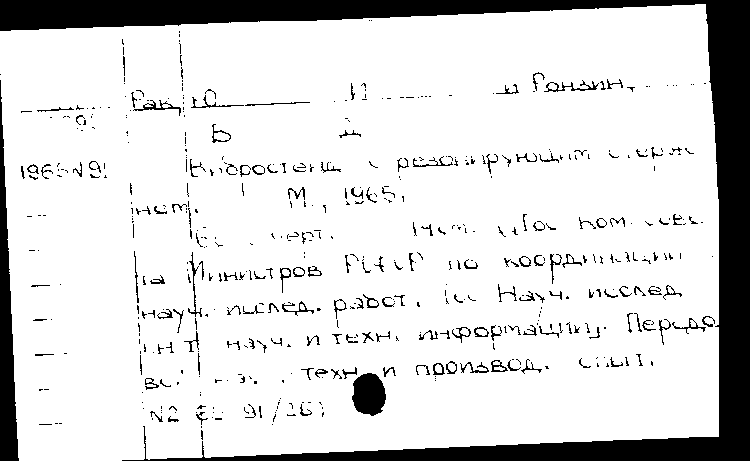 Рак, Ю И и Ронзин,
Б Д
1965 N 91 Вибростенд с резонирующим стерж
нем. М., 1965.
черт. (Гос. ком. Сове
та Министров РСФСР по координации
науч. исслед. работ. Науч. исслед
науч. и техн. информации. Передо
вой техн и производ. опыт.
N2 91/26